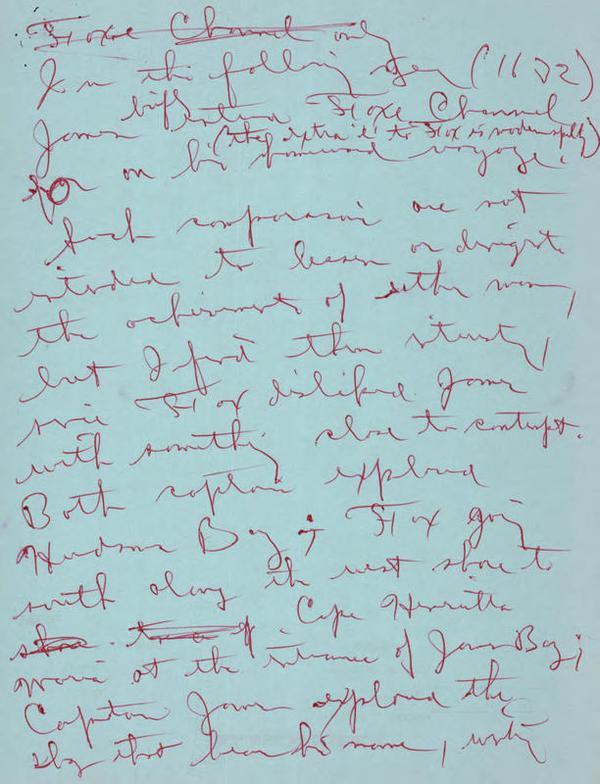 Foxe Channel only
In the following year (1632)
James briefly entered Foxe Channel
(the extra 'e' to Fox is modern spelling)
for on his homeward voyage.
Such comparisons are not
intended to lessen or denigrate
the achievements of either man,
but I find them interesting,
since Fox disliked James
with something close to contempt.
Both captains explored
Hudson Bay; Fox going
south along the west shore to
Cape Henrietta
Maria at the entrance of James Bay;
Captain James explored the
bay that bears his name,